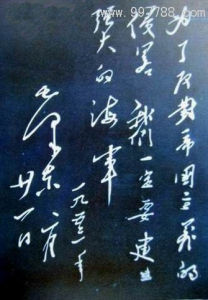 www.997788.com
为了反對帝国主义的
侵略 我們一定要建立
强大的海军
一九五三年
毛泽东 二月
廿一日